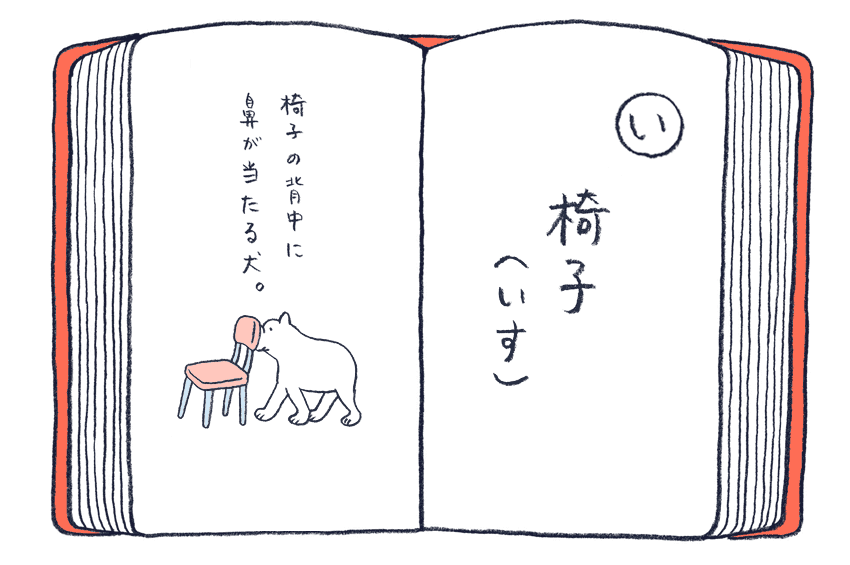 い
椅子
（いす）
椅子の背中に
鼻が当たる犬。